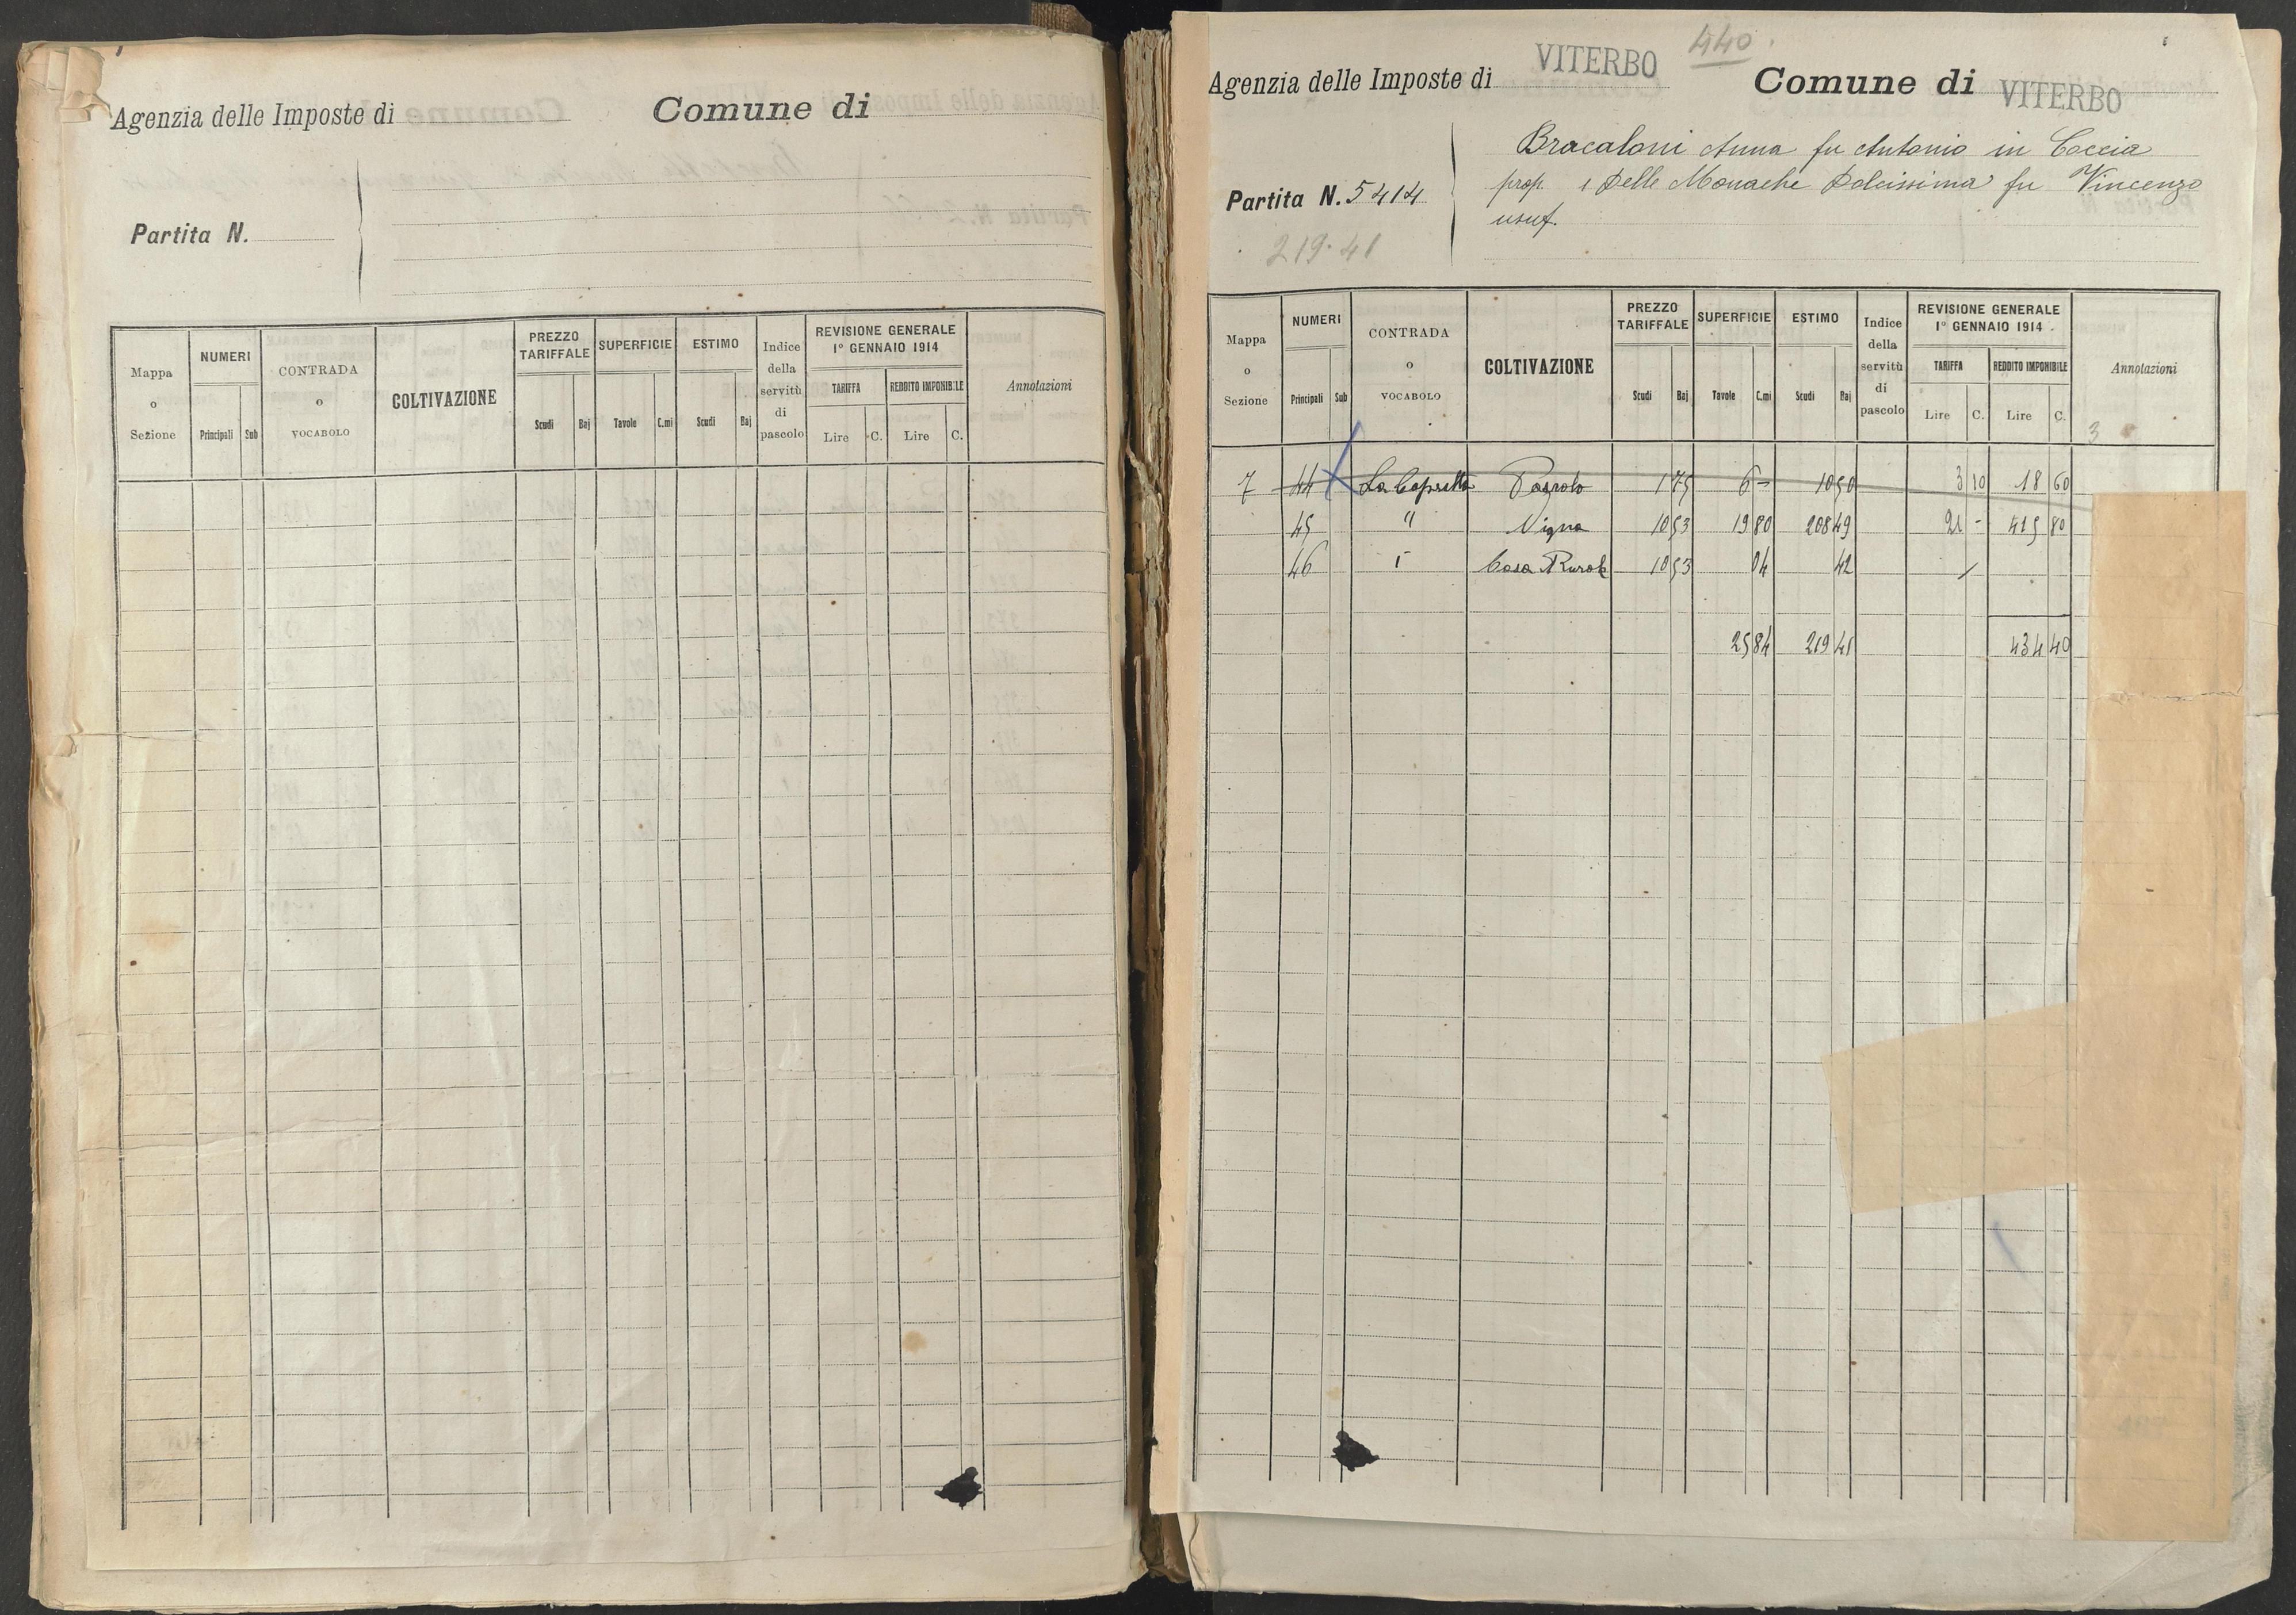 Agenzia delle Imposte di
Comune di
Partita N.
Mappa o Sezione
NUMERI
Principali Sub
CONTRADA o VOCABOLO
COLTIVAZIONE
PREZZO TARIFFALE
Scudi Baj
SUPERFICIE
Tavole C.mi
ESTIMO
Scudi Baj
Indice della servitù di pascolo
REVISIONE GENERALE 1° GENNAIO 1914
TARIFFA
Lire C.
REDDITO IMPONIBILE
Lire C.
Annotazioni
440
Agenzia delle Imposte di VITERBO Comune di VITERBO
Bracaloni Anna fu Antonio in Coccia
Partita N. 5414
prop. e Delle Monache Dolcissima fu Vincenzo
usuf.
219.41
Mappa o Sezione
NUMERI
Principali Sub
CONTRADA o VOCABOLO
COLTIVAZIONE
PREZZO TARIFFALE
Scudi Baj
SUPERFICIE
Tavole C.mi
ESTIMO
Scudi Baj
Indice della servitù di pascolo
REVISIONE GENERALE 1° GENNAIO 1914
TARIFFA
Lire C.
REDDITO IMPONIBILE
Lire C.
Annotazioni
3
7 44 La Capretta Pascolo 1 75 6 - 10 50 3 10 18 60
45 " Vigna 10 53 19 80 208 49 21 - 415 80
46 Casa Rurale 10 53 04 42
25 84 219 41 434 40